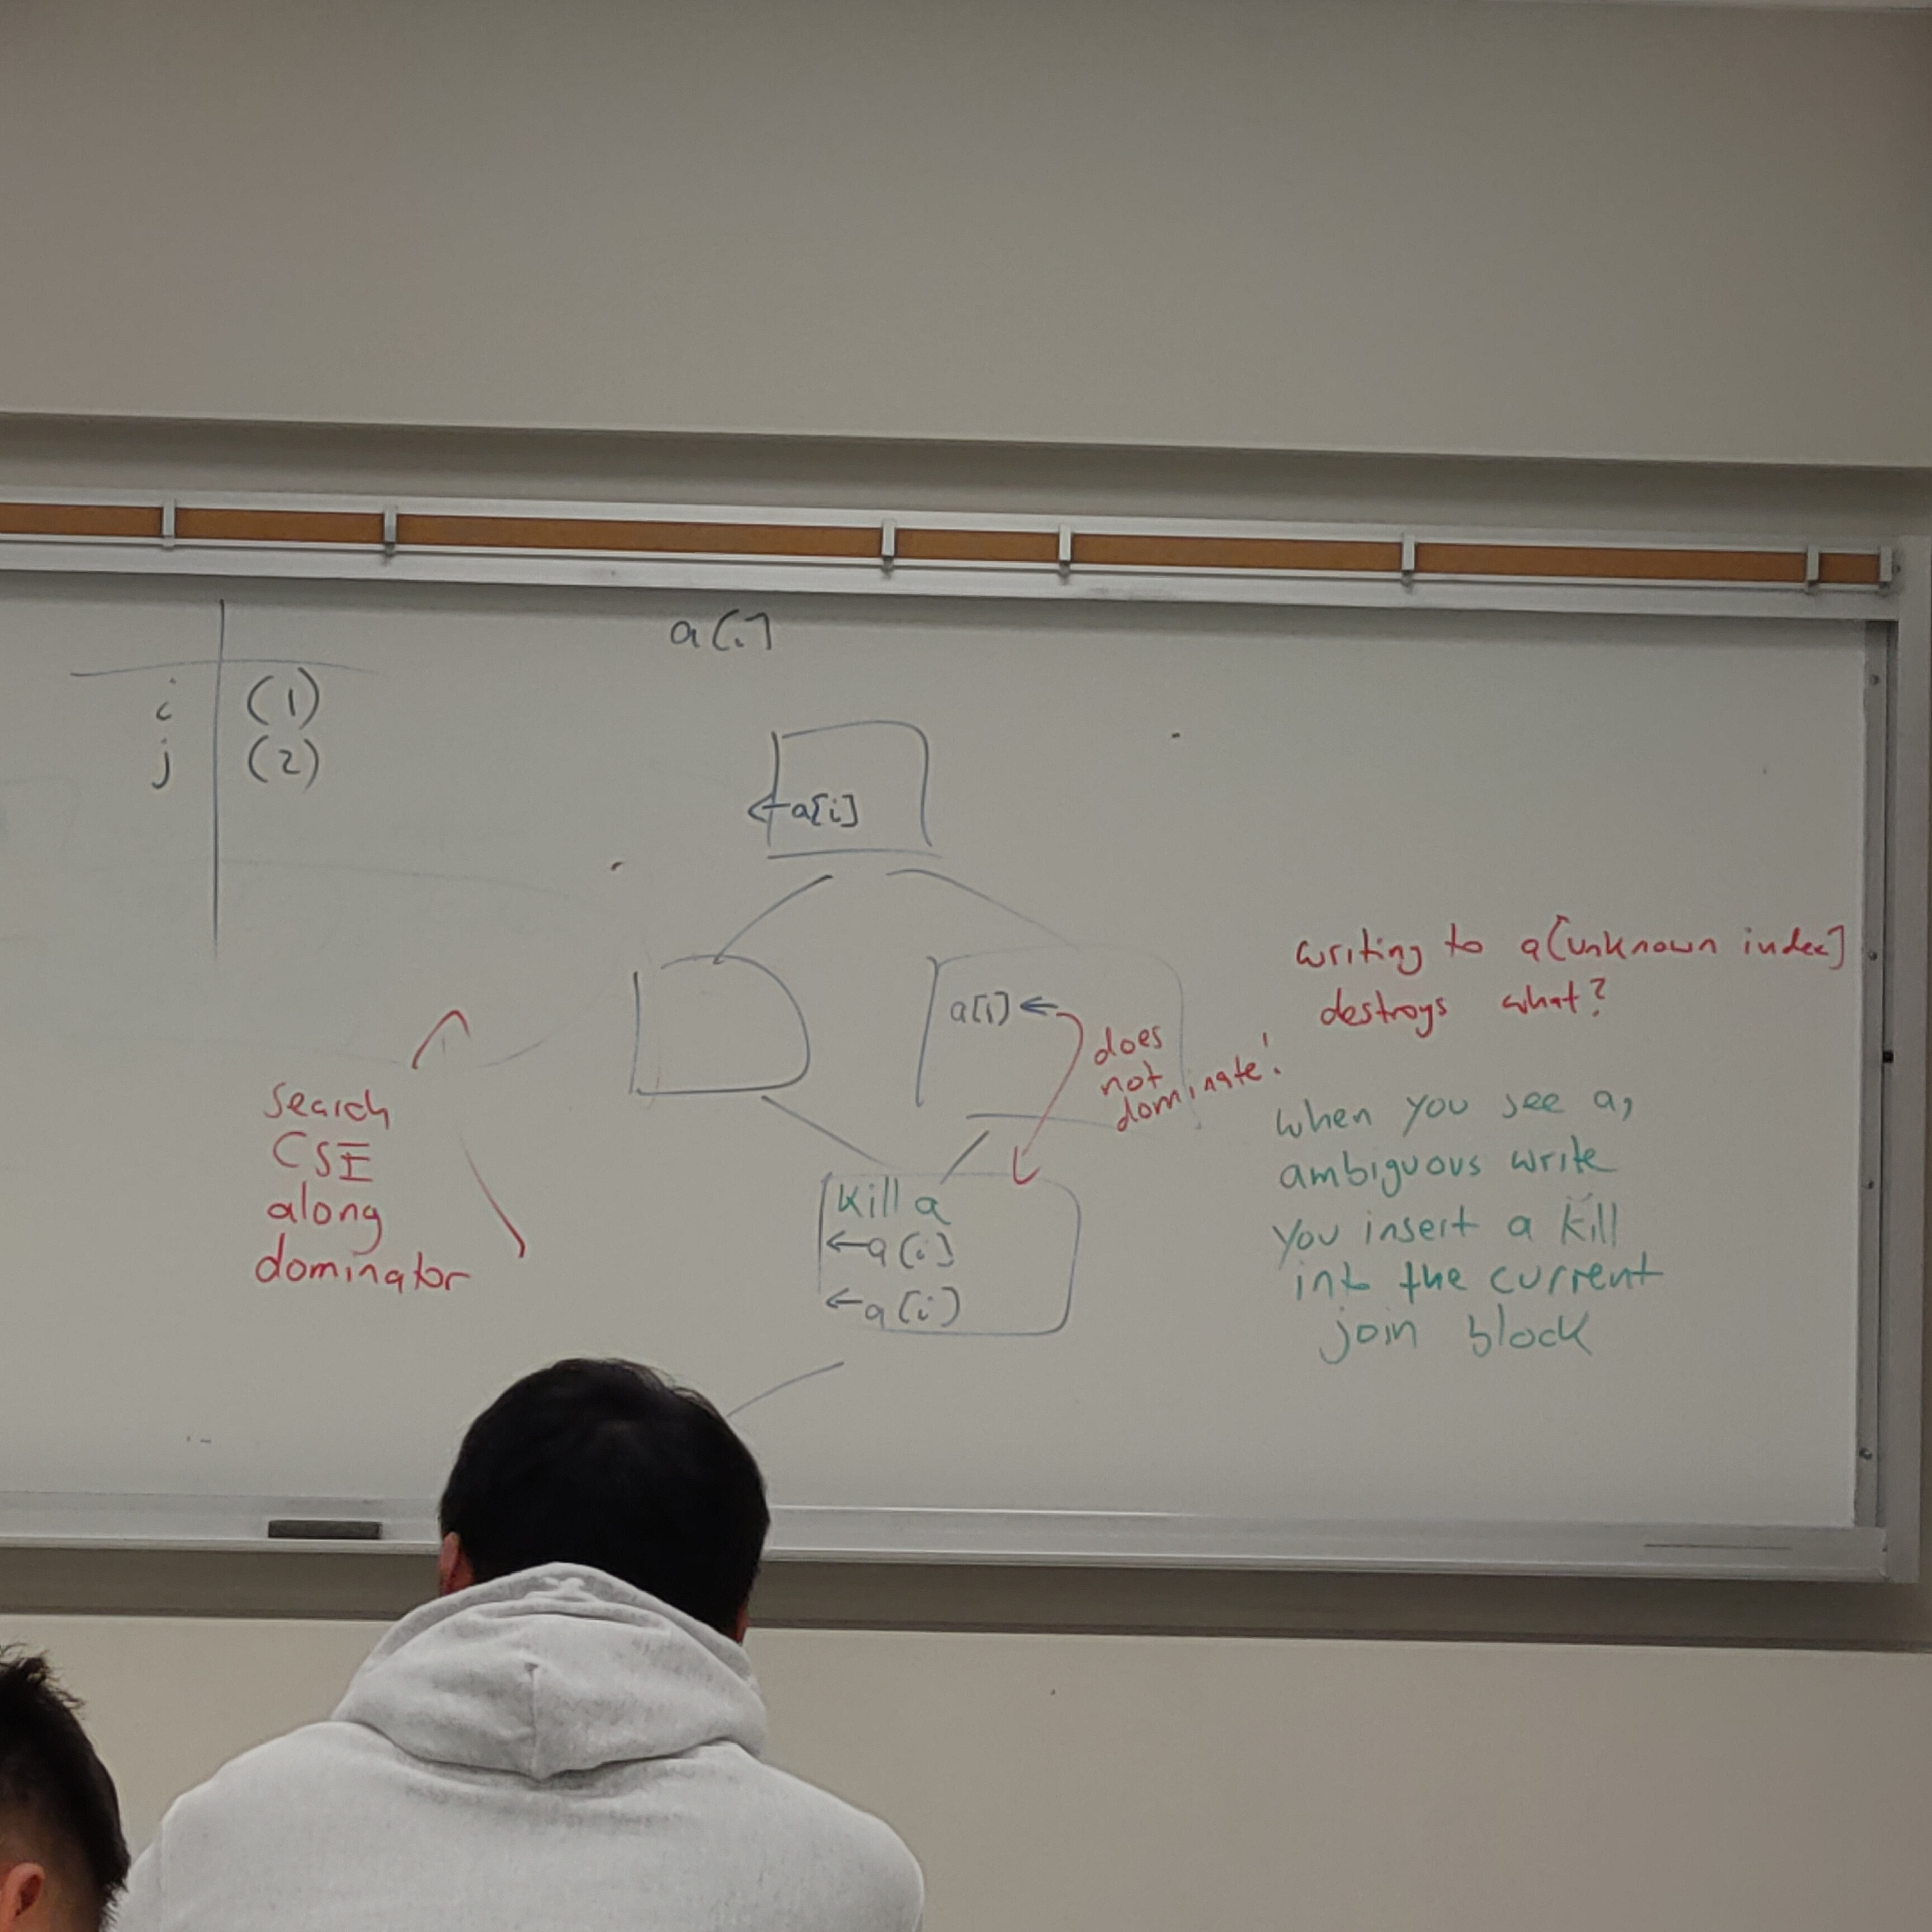 a[.]
i (1)
j (2)
←a[i]
a[i]←
does
not
dominate!
kill a
←a[i]
←a[i]
search
CSE
along
dominator
writing to a[unknown index]
destroys what?
when you see a,
ambiguous write
you insert a kill
into the current
join block